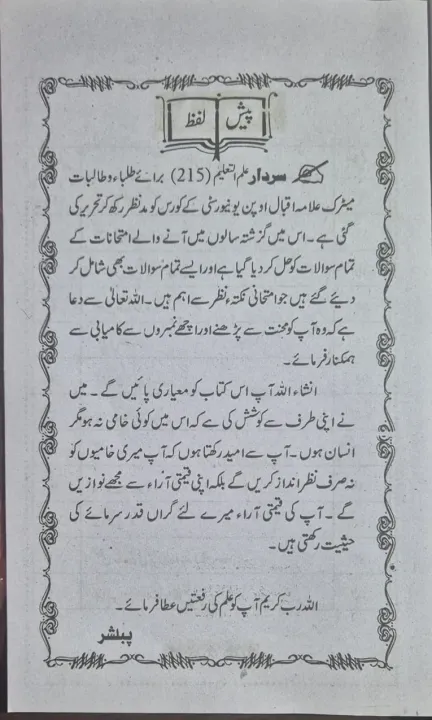 پیش لفظ
سردار علم التعلیم (215) برائے طلباء و طالبات
میٹرک علامہ اقبال اوپن یونیورسٹی کے کورس کو مدنظر رکھ کر تحریر کی
گئی ہے۔ اس میں گزشتہ سالوں میں آنے والے امتحانات کے
تمام سوالات کو حل کر دیا گیا ہے اور ایسے تمام سوالات بھی شامل کر
دیئے گئے ہیں جو امتحانی نکتہء نظر سے اہم ہیں۔ اللہ تعالیٰ سے دعا
ہے کہ وہ آپ کو محنت سے پڑھنے اور اچھے نمبروں سے کامیابی سے
ہمکنار فرمائے۔
انشاء اللہ آپ اس کتاب کو معیاری پائیں گے۔ میں
نے اپنی طرف سے کوشش کی ہے کہ اس میں کوئی خامی نہ ہو مگر
انسان ہوں۔ آپ سے امید رکھتا ہوں کہ آپ میری خامیوں کو
نہ صرف نظر انداز کریں گے بلکہ اپنی قیمتی آراء سے مجھے نوازیں
گے۔ آپ کی قیمتی آراء میرے لئے گراں قدر سرمائے کی
حیثیت رکھتی ہیں۔
اللہ رب کریم آپ کو علم کی رفعتیں عطا فرمائے۔
پبلشر